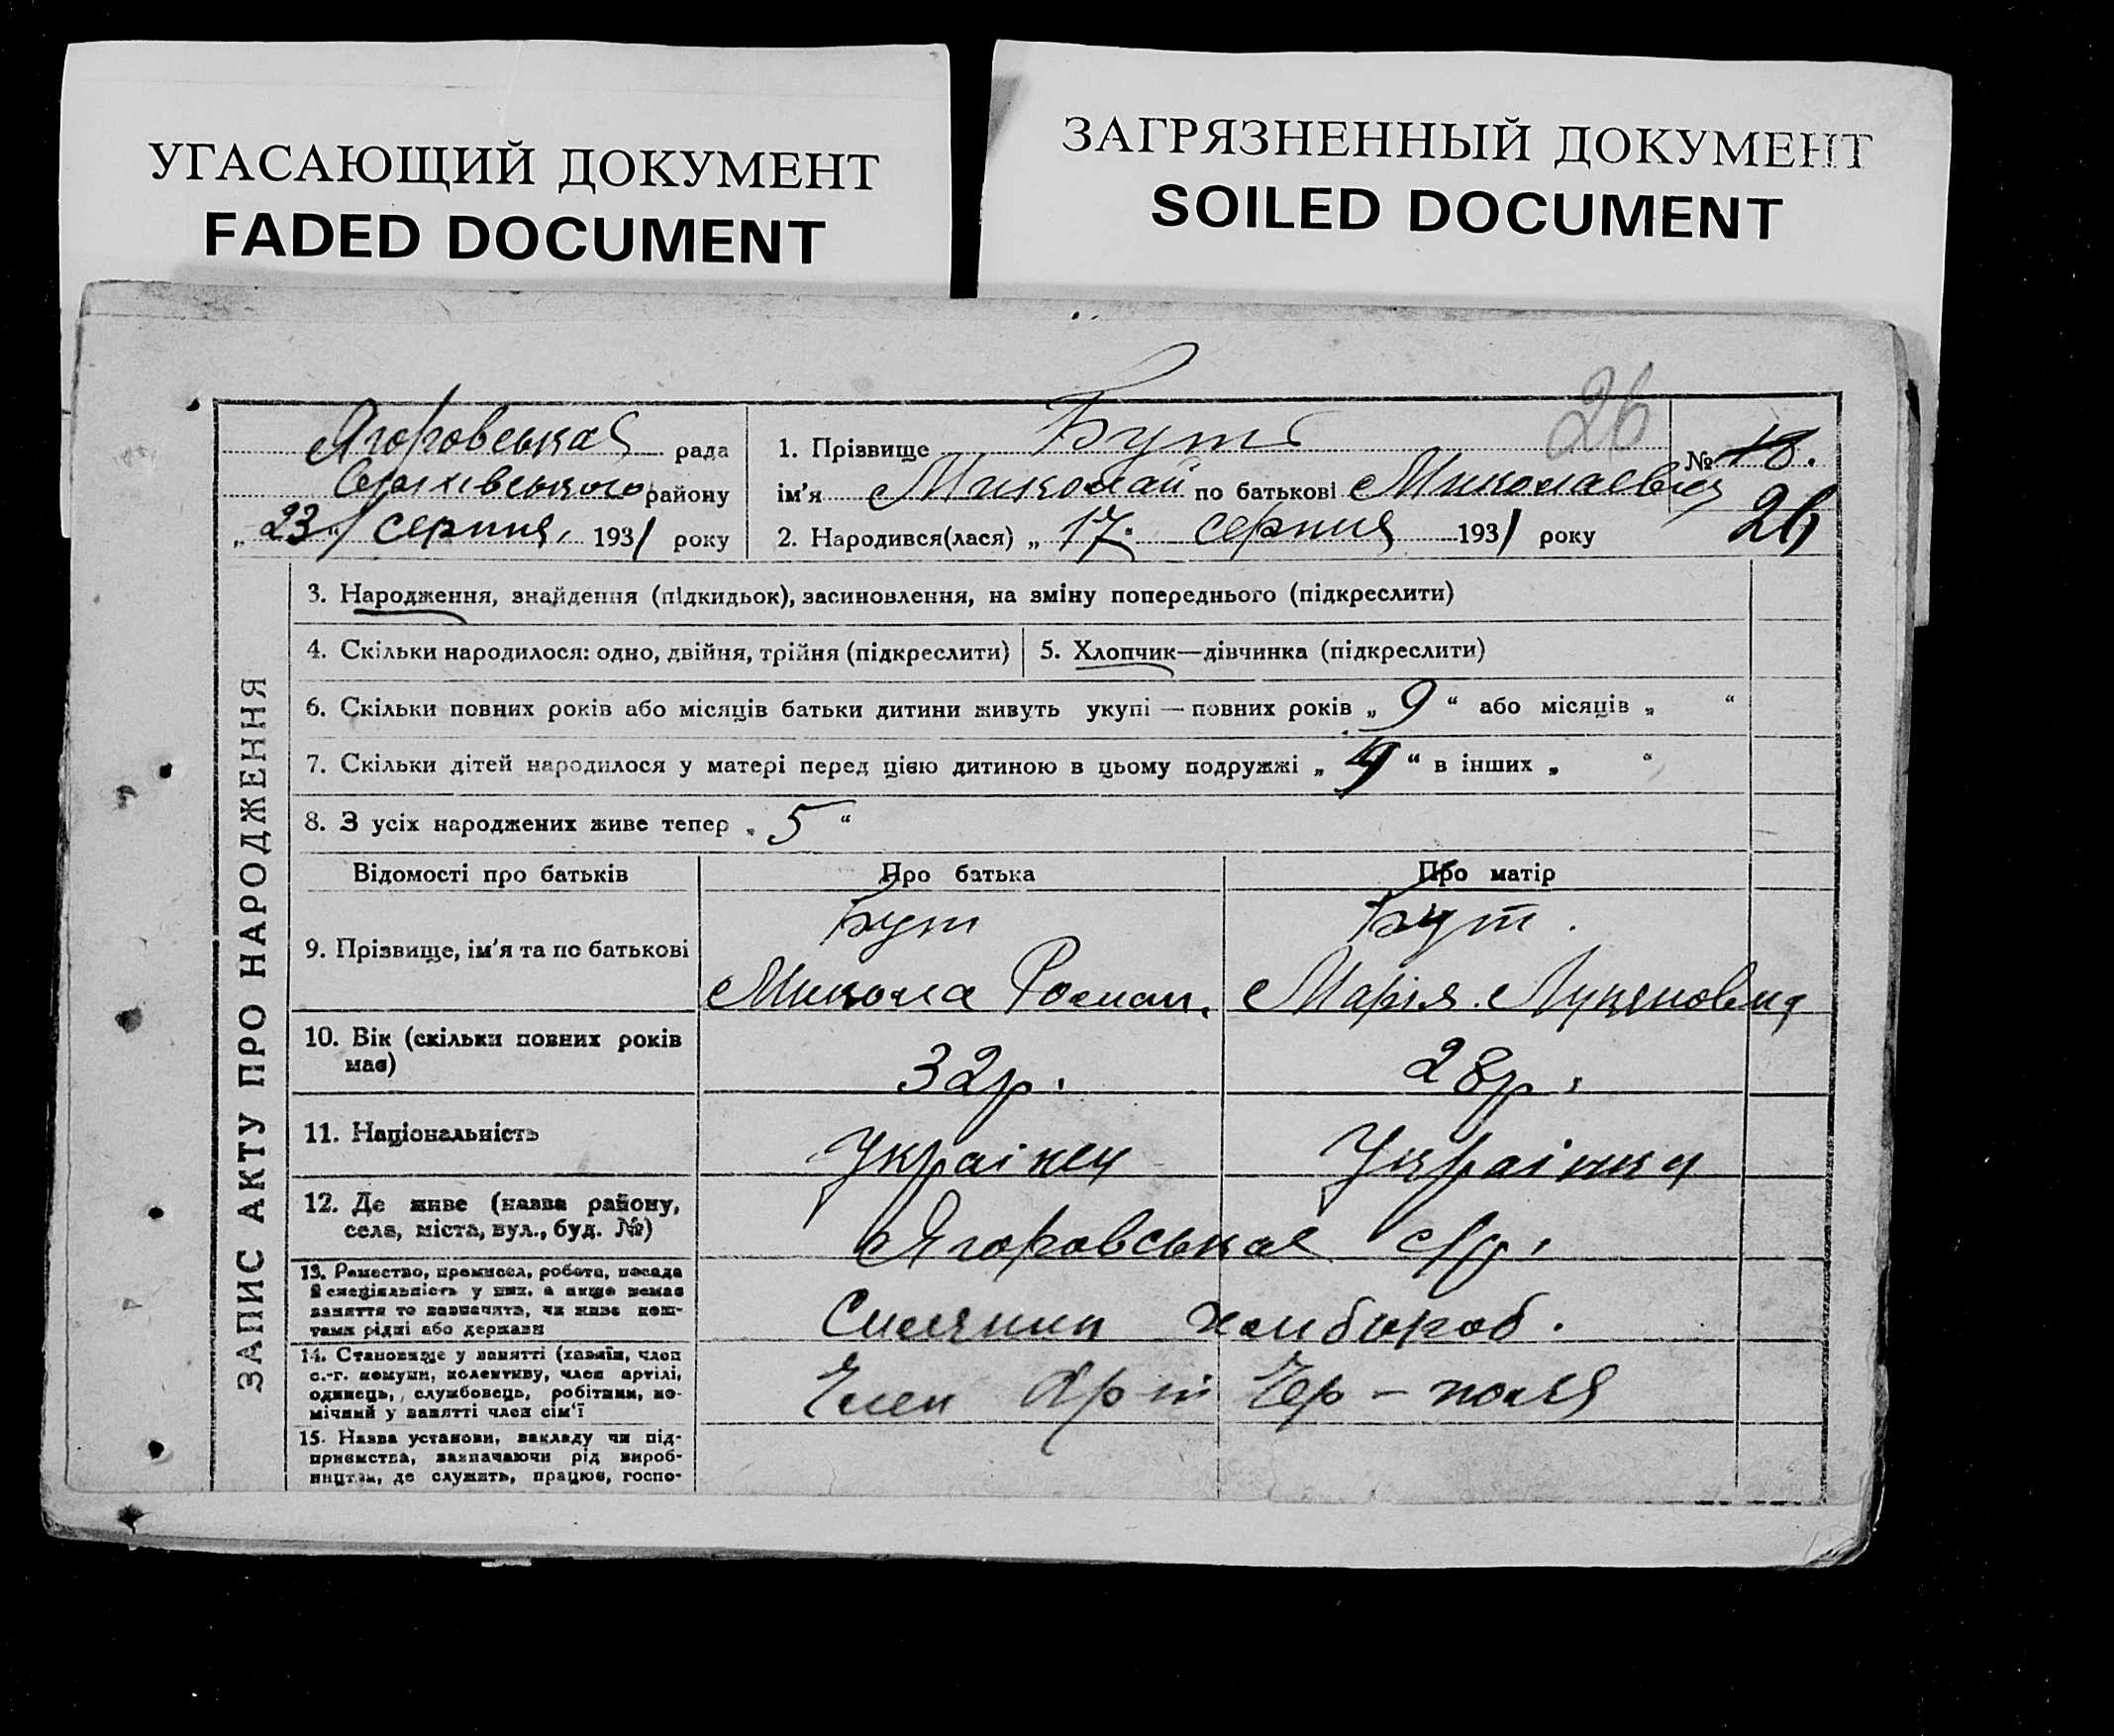 УГАСАЮЩИЙ ДОКУМЕНТ
FADED DOCUMENT
ЗАГРЯЗНЕННЫЙ ДОКУМЕНТ
SOILED DOCUMENT
26
Ягоровська рада
Оріхівського району
„23" серпня, 1931 року
1. Прізвище Бут
ім'я Миколай по батькові Миколаевич
№ 18.
26
2. Народився(лася) „17. серпня 1931 року
ЗАПИС АКТУ ПРО НАРОДЖЕННЯ
3. Народження, знайдення (підкидьок), засиновлення, на зміну попереднього (підкреслити)
4. Скільки народилося: одно, двійня, трійня (підкреслити)
5. Хлопчик—дівчинка (підкреслити)
6. Скільки повних років або місяців батьки дитини живуть укупі — повних років „ 9 “ або місяців „ “
7. Скільки дітей народилося у матері перед цією дитиною в цьому подружжі „ 4 “ в інших „ “
8. З усіх народжених живе тепер „ 5 “
Відомості про батьків
Про батька
Про матір
9. Прізвище, ім'я та по батькові
Бут
Микола Роман.
Бут.
Марія Лукяновна
10. Вік (скільки повних років
має)
32р.
28р.
11. Національність
Украінец
Украінка
12. Де живе (назва району,
села, міста, вул., буд. №)
Ягоровська с/р.
13. Ремество, промисел, робота, посада
й спеціяльність у них, а якщо немає
заняття то зазначить, чи живе кош-
тами рідні або держави
хлибороб.
14. Становище у занятті (хазяїн, член
с.-г. комуни, колективу, член артілі,
одинець, службовець, робітник, по-
мічний у занятті член сім'ї
Член Арт Чер - поля
15. Назва установи, закладу чи під-
приємства, зазначаючи рід вироб-
ництва, де служить, працює, госпо-